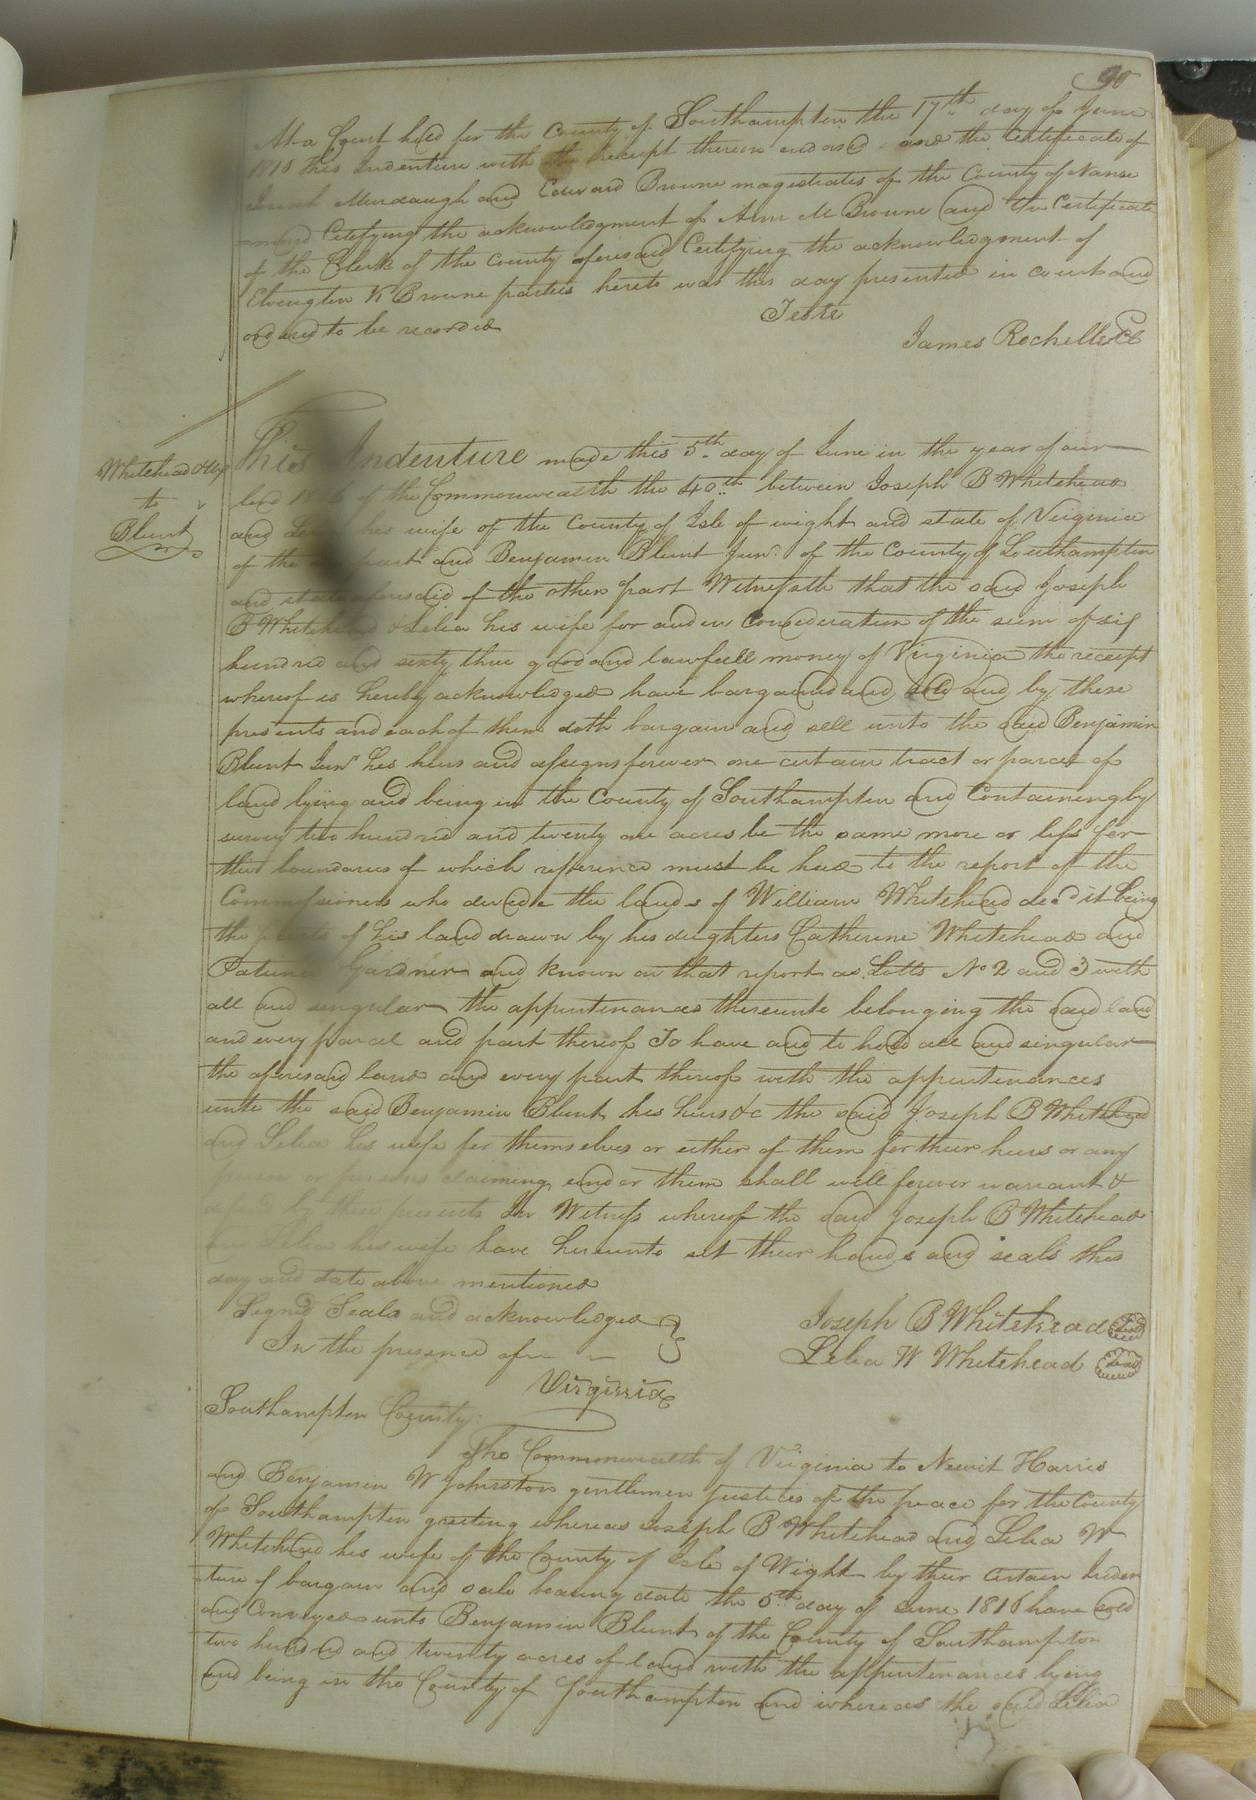 90
At a Court held for the County of Southampton the 17th day of June
1816 this Indenture with the receipt thereon endorsd and the Certificate of
Josiah Murdaugh and Edward Browne magistrates of the County of Nanse
mond Cetifying the acknowledgment of Ann M Browne and the Certificate
of the Clerk of the County aforesaid Certifying the acknowledgment of
Browne parties hereto was this day presented in court and
ordered to be recorded
Teste
James Rochelle CC
Whitehead & Ux
to
Blunt
This Indenture made this 5th day of June in the year of our
lord 1816 of the Commonwealth the 40th between Joseph B Whitehead
and Lelia his wife of the County of Isle of wight and state of Virginia
of the part and Benjamin Blunt Junr of the County of Southampton
and state aforesaid of the other part Witnesseth that the said Joseph
B Whitehead & Lelia his wife for and in Consideration of the sum of six
hundred and sixty three good and lawfull money of Virginia the receipt
whereof is hereby acknowledged have bargained and sold and by these
presents and each of them doth bargain and sell unto the said Benjamin
Blunt Junr his heirs and assigns forever one certain tract or parcel of
land lying and being in the County of Southampton and Containing by
survey two hundred and twenty one acres be the same more or less for
the boundaries of which refference must be had to the report of the
Commissioners who devided the lands of William Whitehead decd it being
the of his land drawn by his daughters Catherine Whitehead and
Gardner and known on that report as Lotts No 2 and 3 with
all and singular the appurtenances thereunto belonging the said land
and every parcel and part thereof To have and to hold all and singular
the aforesaid land and every part thereof with the appurtenances
unto the said Benjamin Blunt his heirs &c the said Joseph B Whitehead
and Lelia his wife for themselves or either of them for their heirs or any
person or persons claiming under them shall will forever warrant &
defend by these presents In Witness whereof the said Joseph B Whitehead
and Lelia his wife have hereunto set their hands and seals this
day and date above mentioned
Signed Seald and acknowledged
In the presence of
Joseph B Whitehead Seal
Lelia W Whitehead Seal
Virginia
Southampton County:
The Commonwealth of Virginia to Newit Harris
and Benjamin W Johnston gentlemen justices of the peace for the County
of Southampton greeting whereas Joseph B Whitehead and Lelia W
Whitehead his wife of the County of Isle of Wight by their certain Inden
ture of bargain and sale bearing date the 5th day of June 1816 have sold
and Conveyed unto Benjamin Blunt of the County of Southampton
two hundred and twenty acres of land with the appurtenances lying
and being in the County of Southampton and whereas the said Lelia